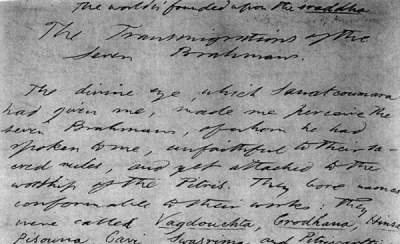 the world is founded upon the sraddha
The Transmigrations of the
Seven Brahmans.
The divine eye, which Sanatcoumara
had given me, made me perceive the
seven Brahmans, of whom he had
spoken to me, unfaithful to their sa-
cred rules, and yet attached to the
worship of the Pitris. They bore names
conformable to their works: They
were called Vagdouchta, Crodhana, Hinsa
Pisouna, Cavi, Swasrima, and